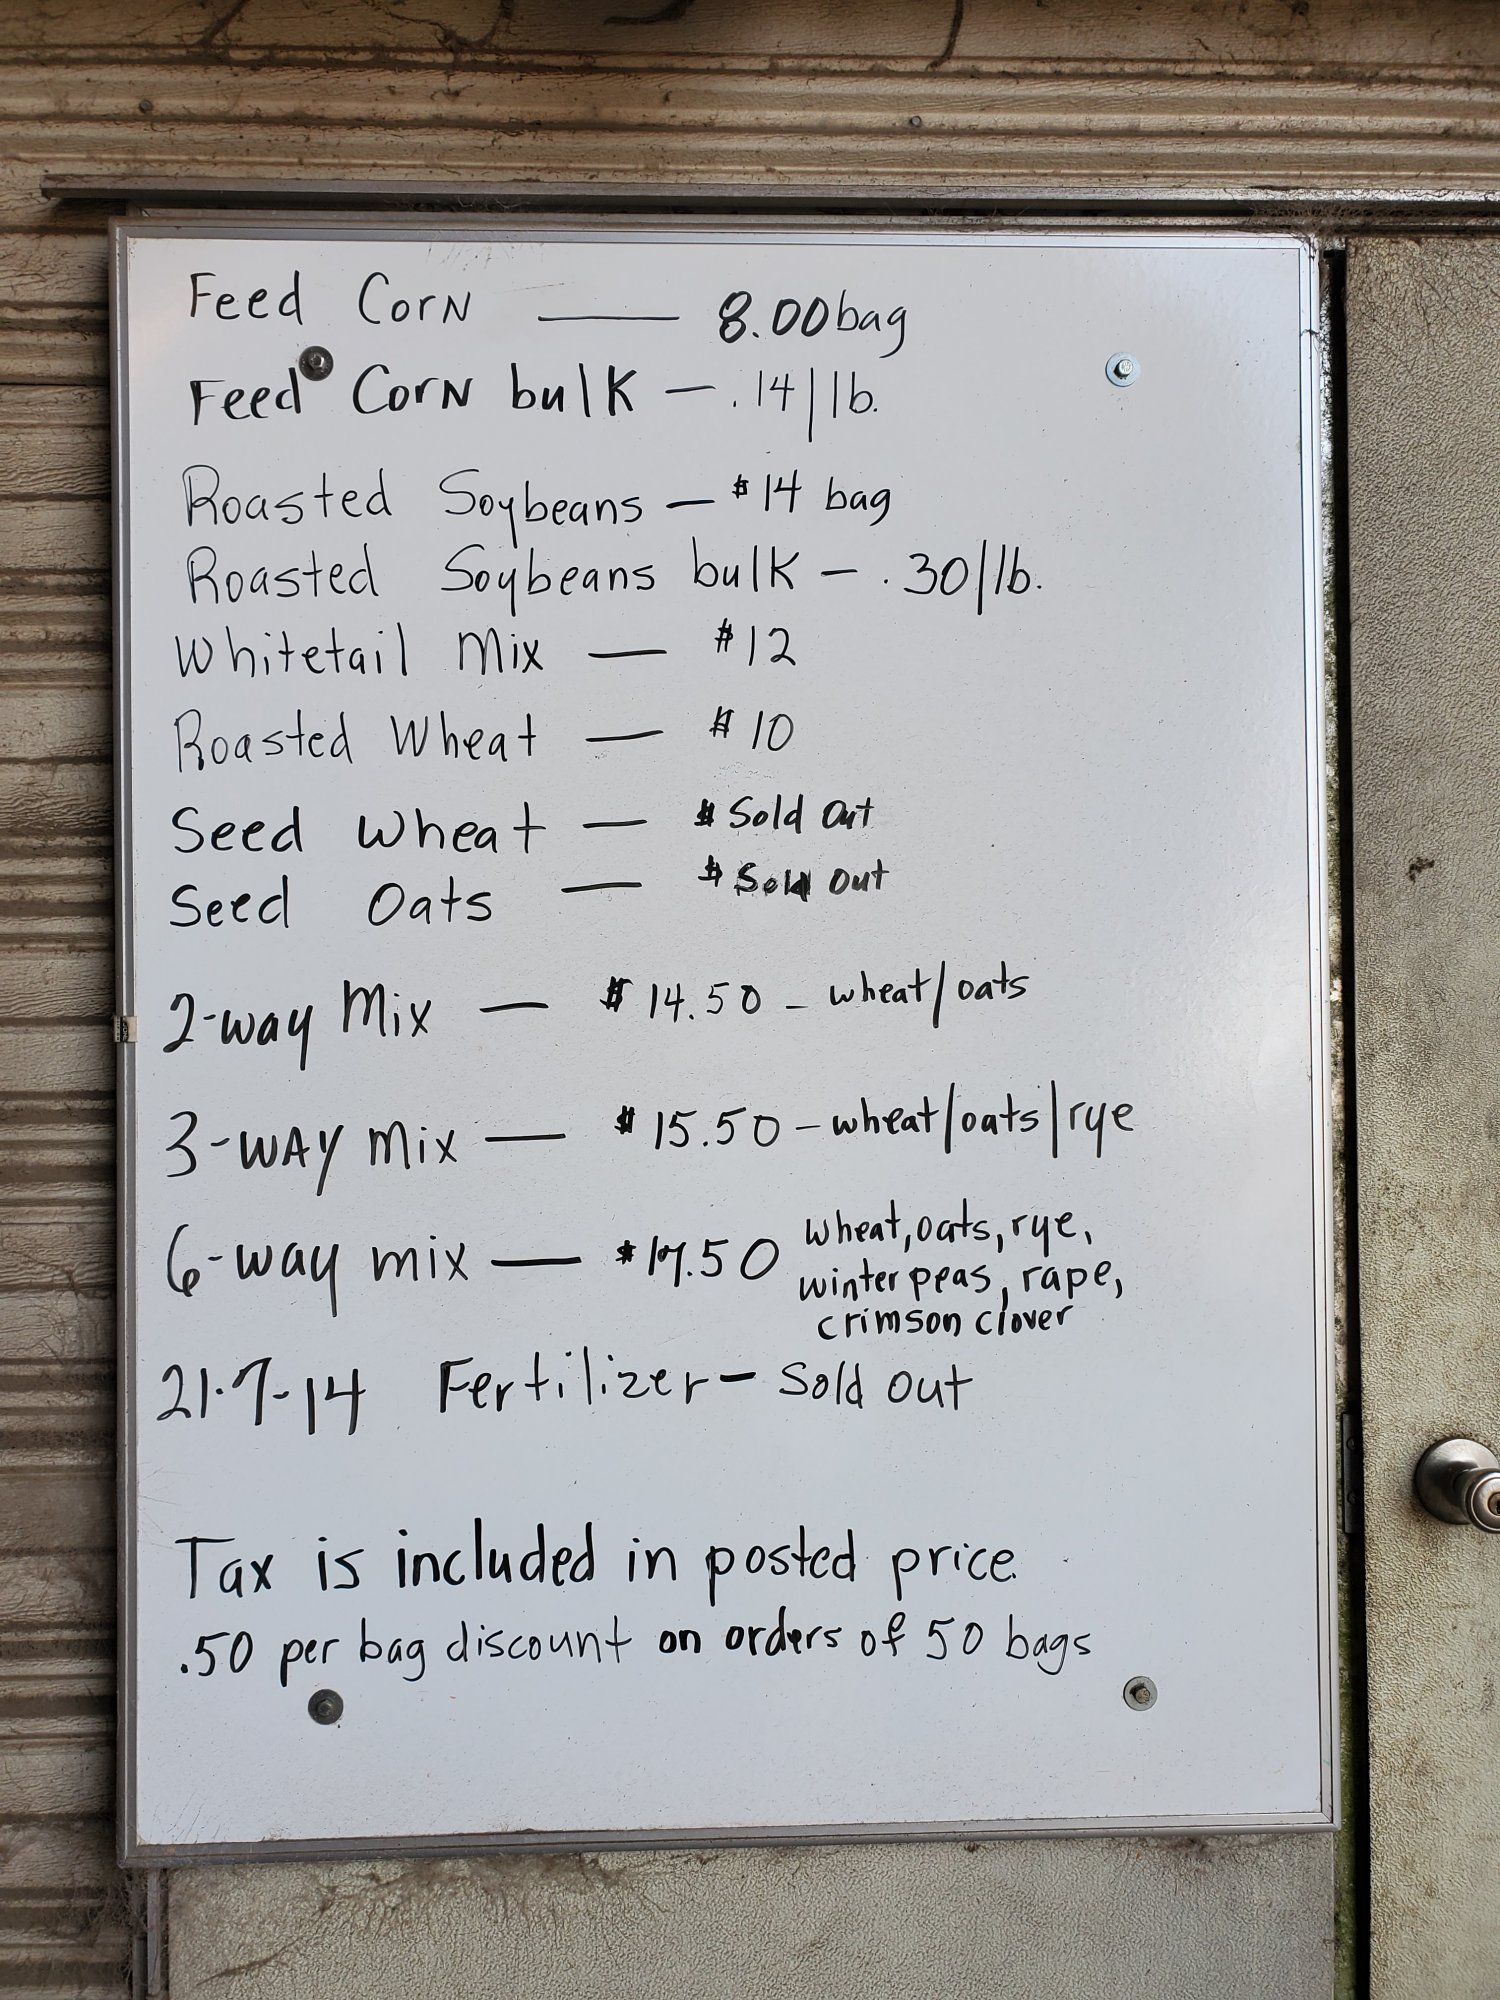 Feed Corn — 8.00 bag
Feed Corn bulk — .14/lb.
Roasted Soybeans — $14 bag
Roasted Soybeans bulk — .30/lb.
Whitetail Mix — $12
Roasted Wheat — $10
Seed Wheat — $ Sold Out
Seed Oats — $ Sold Out
2-way Mix — $14.50 - wheat/oats
3-WAY Mix — $15.50 - wheat/oats/rye
6-way mix — $17.50 wheat, oats, rye,
winter peas, rape,
crimson clover
21-7-14 Fertilizer - Sold out
Tax is included in posted price.
.50 per bag discount on orders of 50 bags